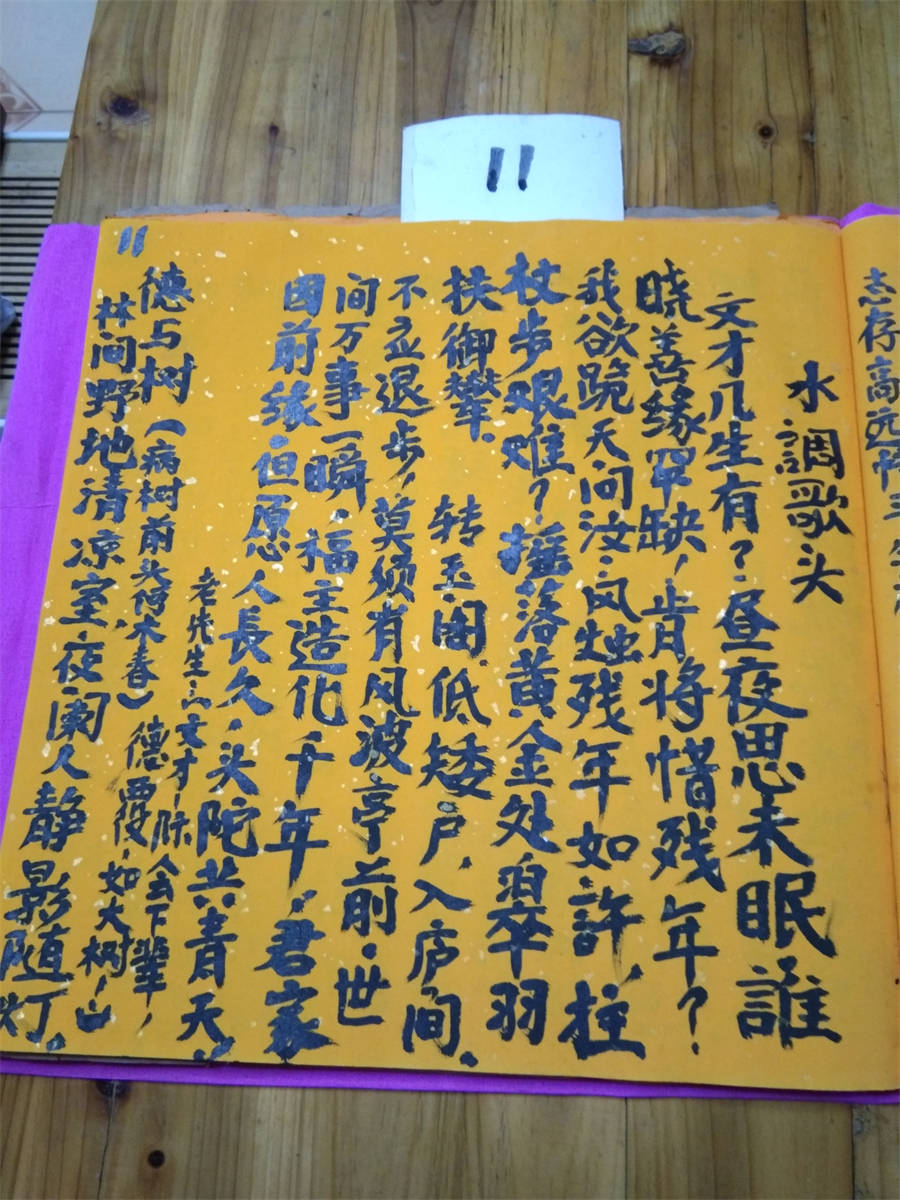 11
志存高远
水调歌头
文才几生有？昼夜思未眠，誰
晓善缘罕缺，肯将惜残年？
我欲跪天问汶，风烛残年如許，拄
杖步艰难？摇落黄金处，翠羽
扶御攀。 转玉闺，低矮户，入庐间。
不应退步，莫须肖风波亭前。世
间万事一瞬，福主造化千年，君家
因前缘。但愿人長久，头陀共青天。
老先生 文才 际会下辈，
德与树（病树前头何木春）德覆，如大树，山
林间野地清凉室，夜阑人静影随灯。
11